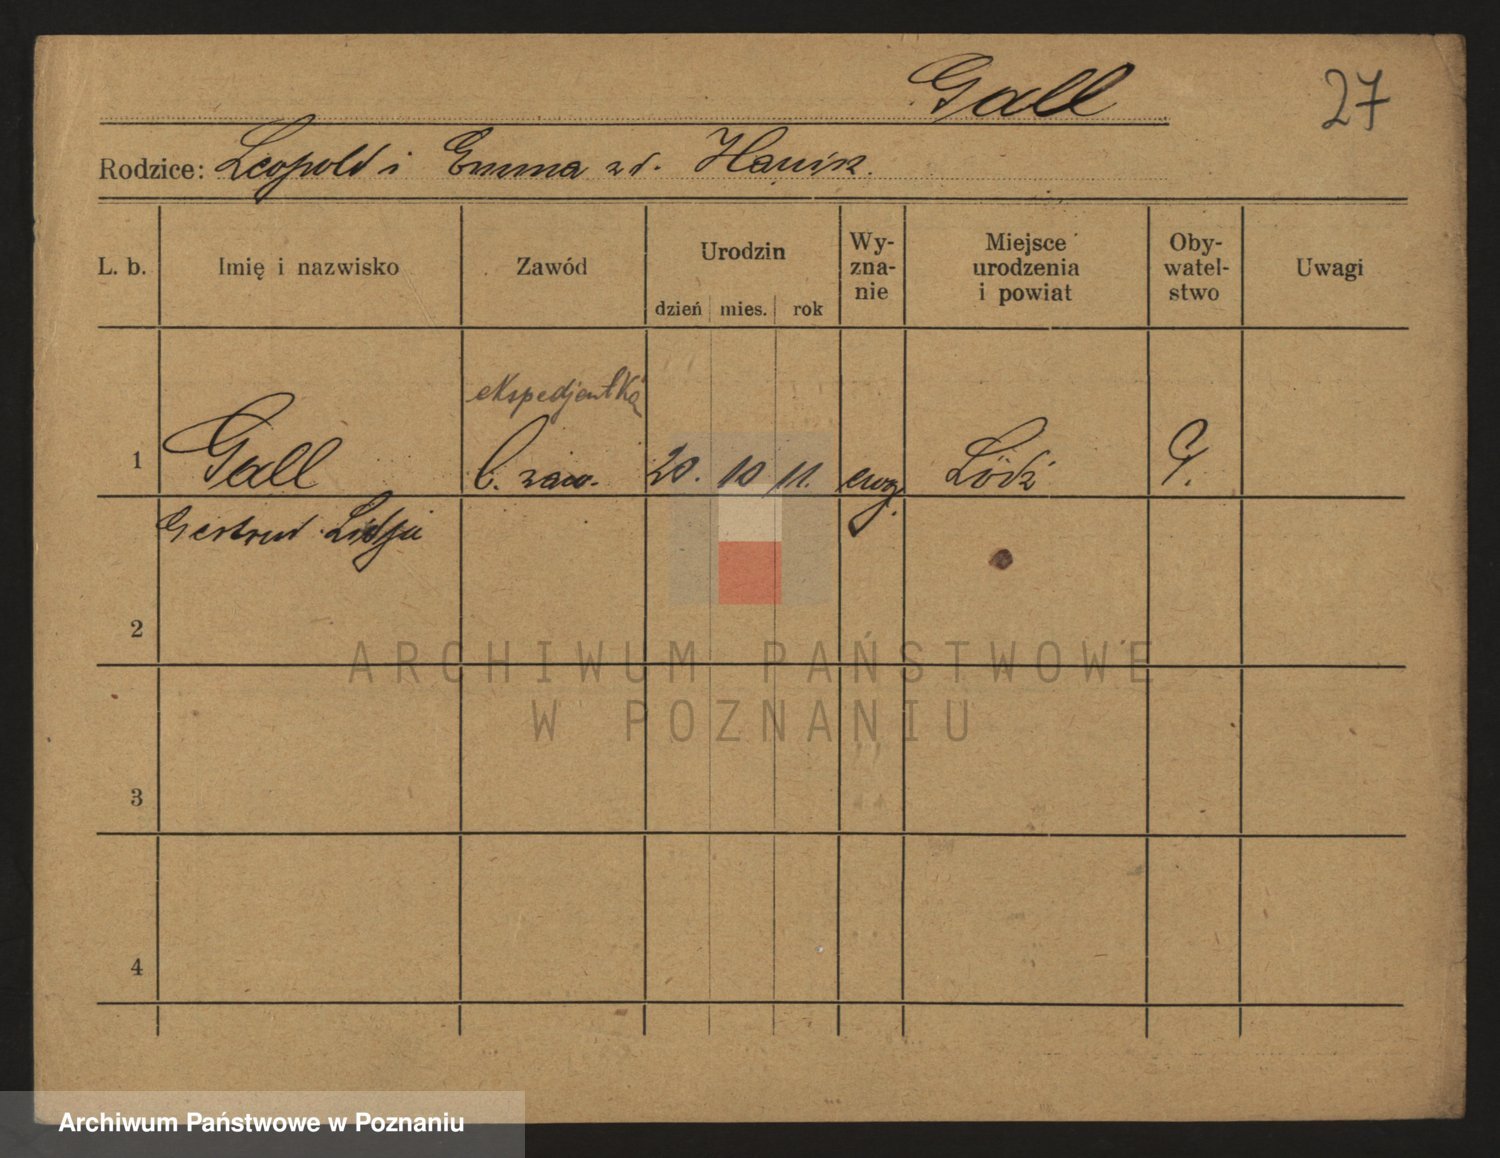 Gall
27
Rodzice: Leopold i Emma zd.
L. b. Imię i nazwisko Zawód Urodzin dzień mies. rok Wy-zna-nie Miejsce urodzenia i powiat Oby-watel-stwo Uwagi
ekspedjentka
1 Gall b. zaw. 20. 10 11. ewg. Łódź
Gertrud Lidja
2
3
4
ARCHIWUM PAŃSTWOWE
W POZNANIU
Archiwum Państwowe w Poznaniu